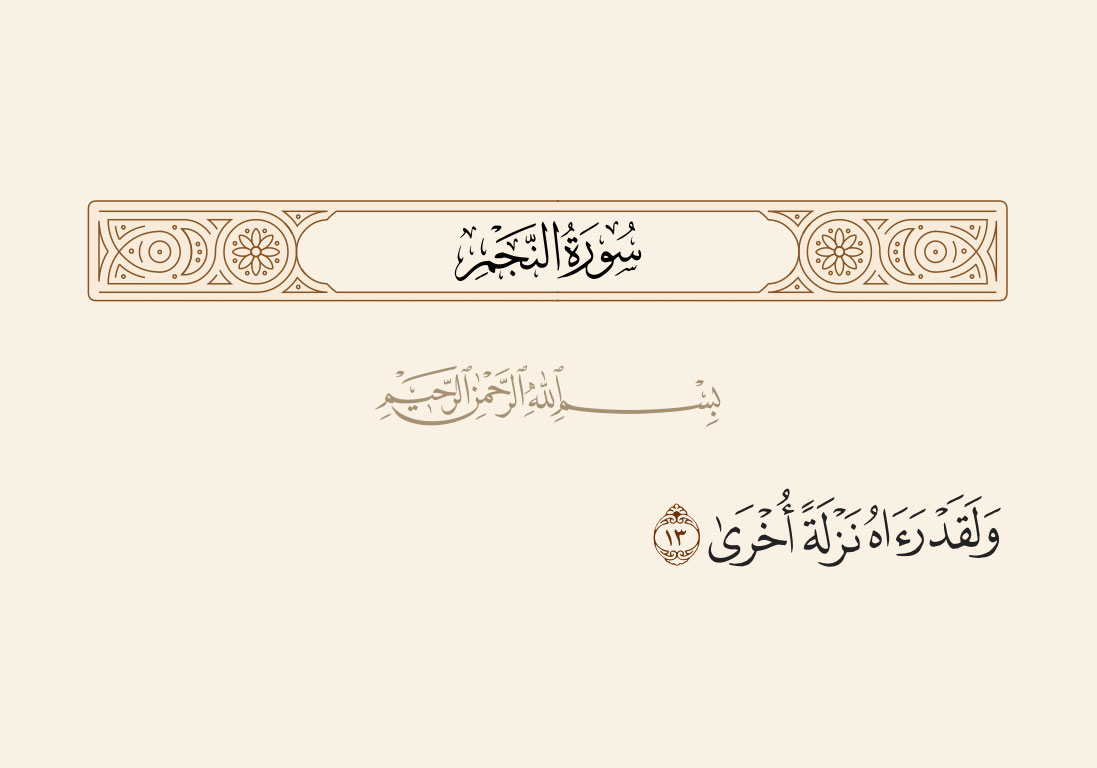 سُورَةُ النَّجْمِ
بِسْمِ اللَّهِ الرَّحْمَٰنِ الرَّحِيمِ
وَلَقَدْ رَءَاهُ نَزْلَةً أُخْرَىٰ ١٣